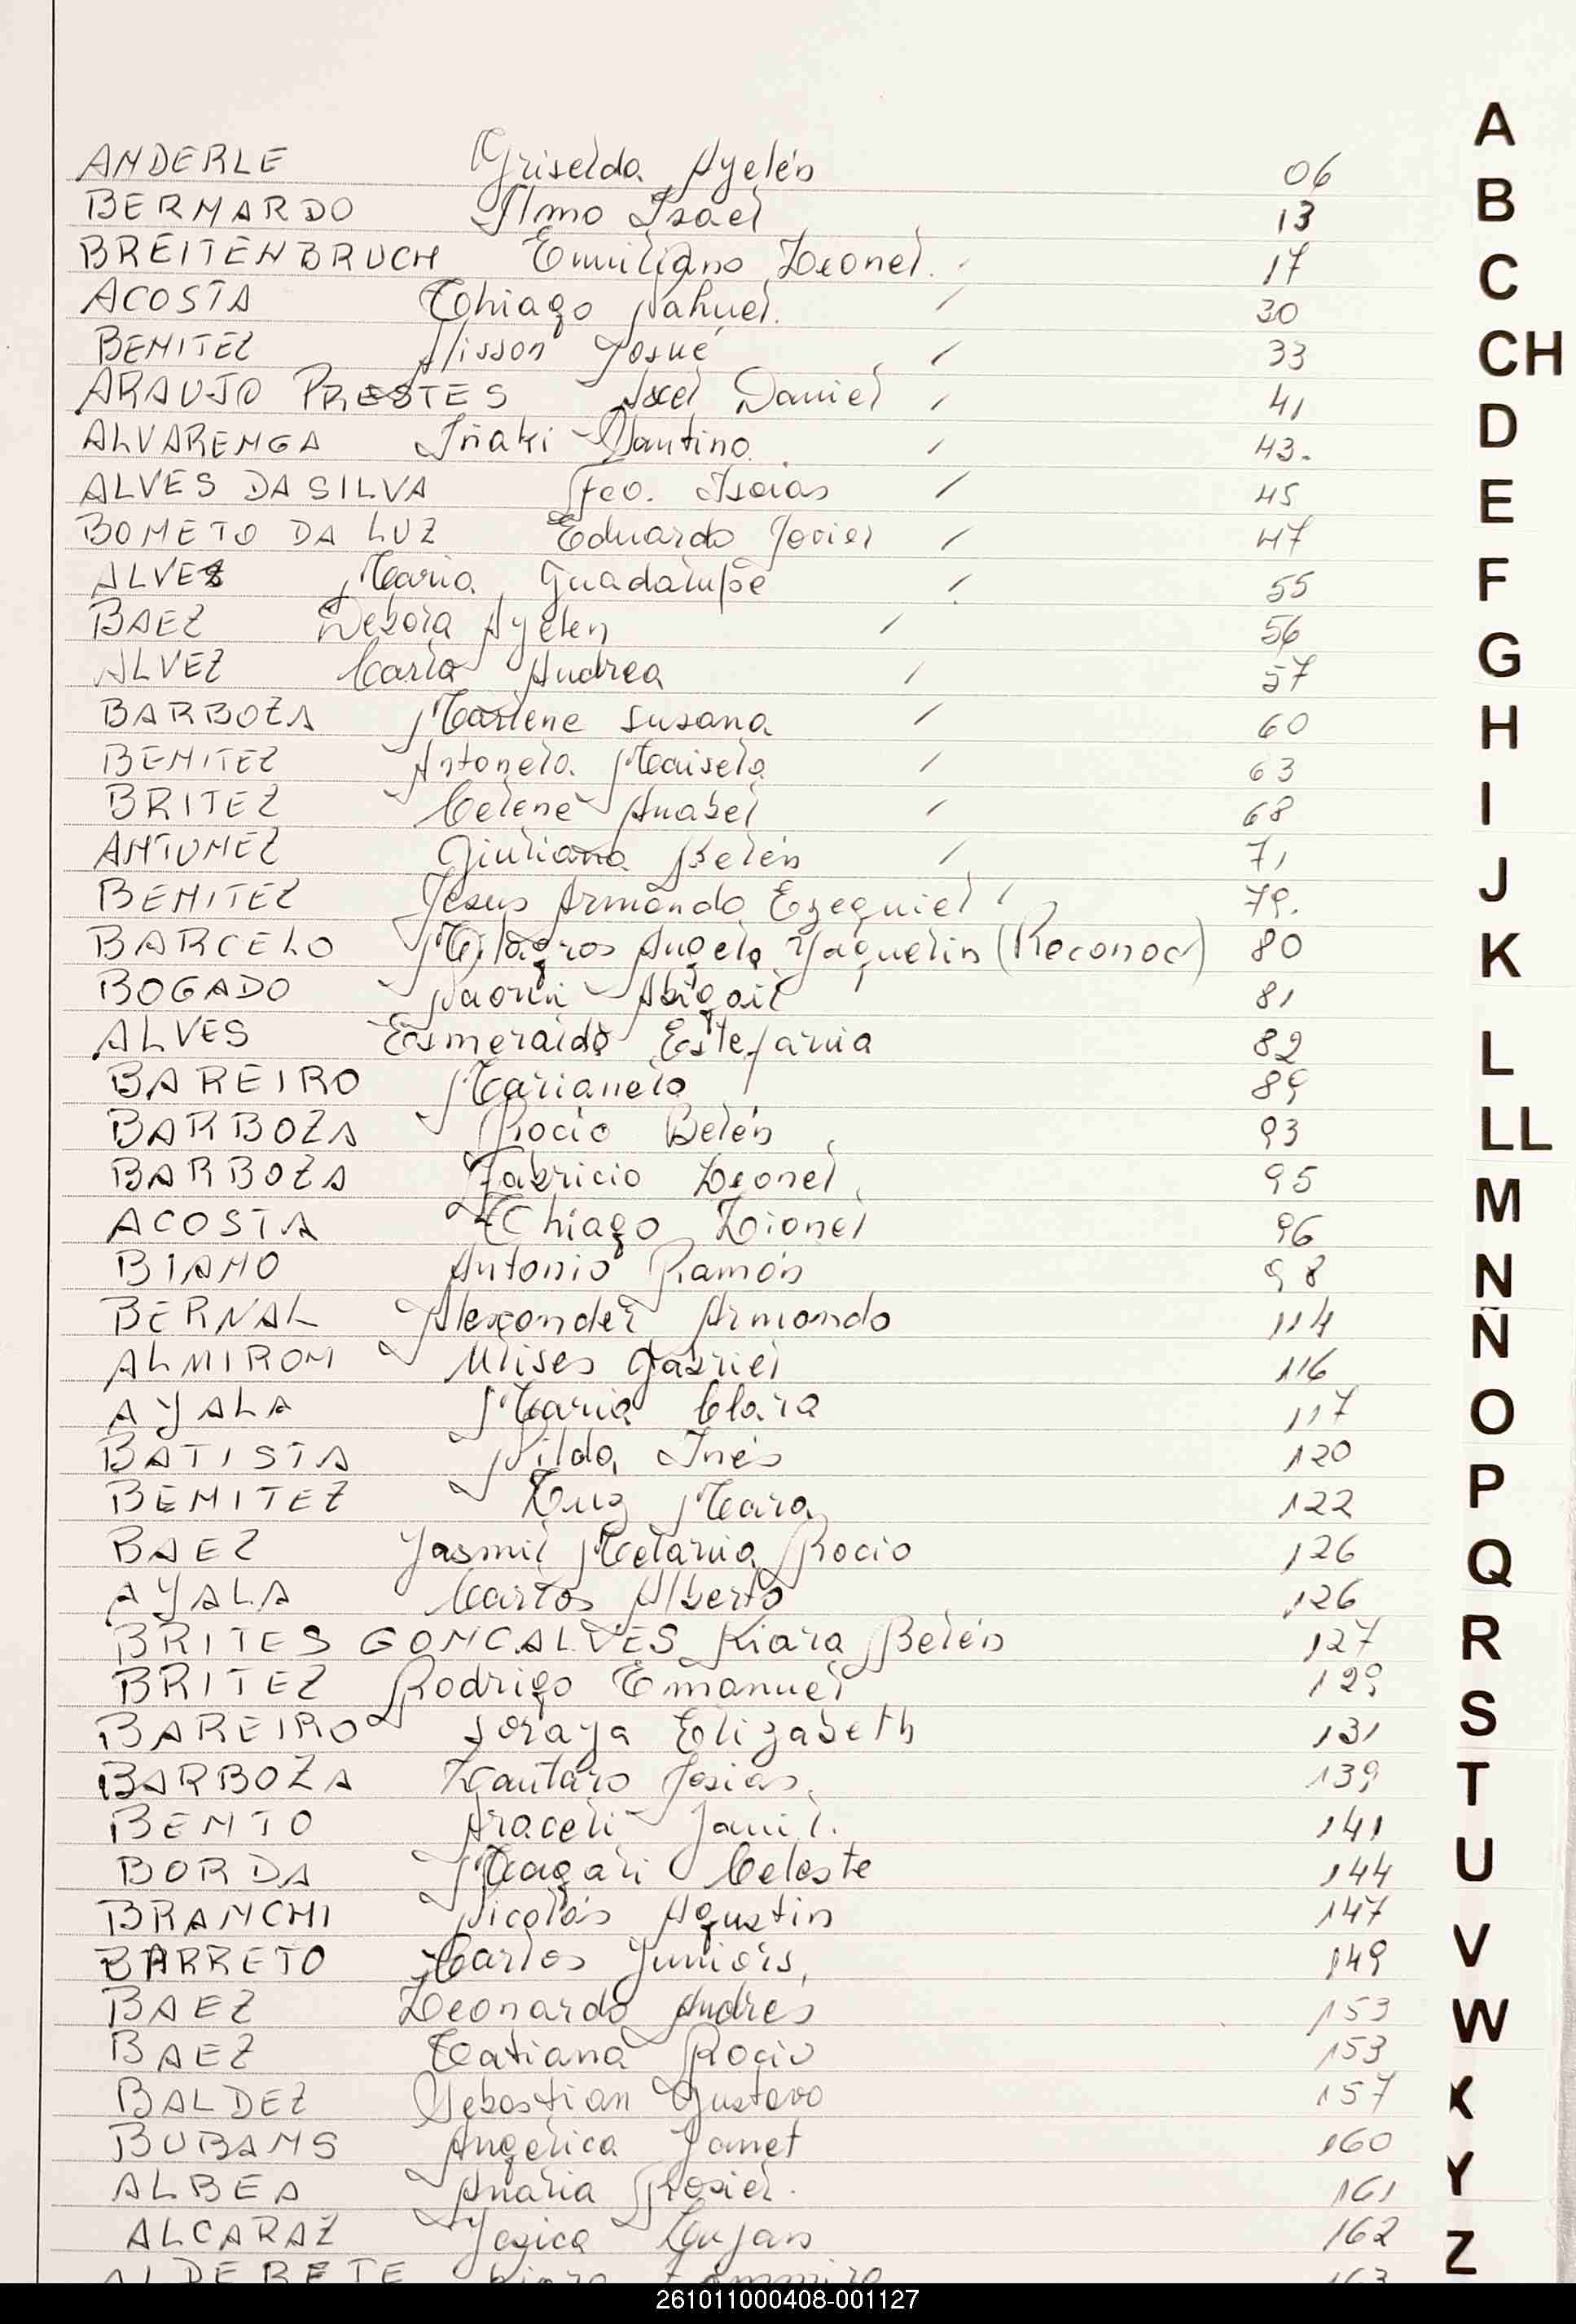 ANDERLE Griselda Ayelén 06
BERNARDO Ilmo Isael 13
BREITENBRUCH Emiliano Leonel. 17
ACOSTA Thiago Nahuel. 30
BENITEZ Alisson Josué 33
ARAUJO PRESTES Axel Daniel 41
ALVARENGA Iñaki Santino 43.
ALVES DA SILVA Fco. Isaias 45
BONETO DA LUZ Eduardo Javier 47
ALVES Maria Guadalupe 55
BAEZ Debora Ayelen 56
ALVEZ Carla Andrea 57
BARBOZA Marlene Susana 60
BENITEZ Antonela Maisela 63
BRITEZ Celene Anabel 68
ANTUNEZ Giuliana Belén 71
BENITEZ Jesus Armando Ezequiel 79.
BARCELO Milagros Angela Yaquelin (Reconoc) 80
BOGADO Naorin Abigail 81
ALVES Esmeralda Estefania 82
BAREIRO Marianela 89
BARBOZA Rocio Belén 93
BARBOZA Fabricio Leonel 95
ACOSTA Thiago Lionel 96
BIANO Antonio Ramón 98
BERNAL Alexander Armando 114
ALMIRON Ulises Gabriel 116
AYALA Maria Clara 117
BATISTA Nilda Inés 120
BENITEZ Luz Mara 122
BAEZ Yasmil Melania Rocio 126
AYALA Carlos Alberto 126
BRITES GONCALVES Kiara Belén 127
BRITEZ Rodrigo Emanuel 129
BAREIRO Soraya Elizabeth 131
BARBOZA Lautaro Josias. 139
BENTO Araceli Janil. 141
BORDA Magali Celeste 144
BRANCHI Nicolás Agustin 147
BARRETO Carlos Juniors, 149
BAEZ Leonardo Andres 153
BAEZ Tatiana Rocio 153
BALDEZ Sebastian Gustavo 157
BUBANS Angelica Janet 160
ALBEA Analia Rosiel. 161
ALCARAZ Yesica Lujan 162
ALDERETE 163
A
B
C
CH
D
E
F
G
H
I
J
K
L
LL
M
N
Ñ
O
P
Q
R
S
T
U
V
W
X
Y
Z
261011000408-001127